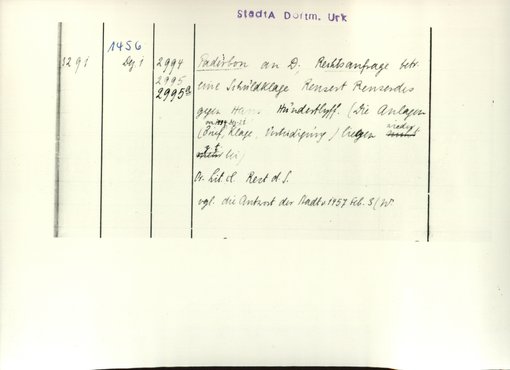 StadtA Dortm. Urk
1456
3291 Dez. 1 2994 Paderborn an D., Rechtsanfrage betr.
2995 eine Schuldklage Rensert Renserdes
2995a gegen Herm. Hundertlyff. (Die Anlagen
(Brief, Klage, Verteidigung) liegen
bei)
Or. lit. cl. Rest d. S.
vgl. die Antwort der Stadt v. 1457 Feb. 3 (W